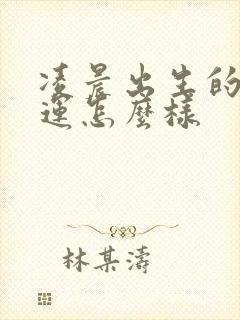 凌晨出生的
運怎麼樣
林某濤